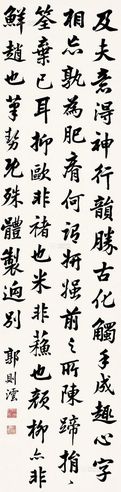 及夫意得神行韻勝古化觸手成趣心字
相忘孰為肥瘠何謂妍媸前之所陳蹄捐
筌棄已耳抑歐非褚也米非蘇也顏柳亦非
鮮趙也筆勢既殊體製迥別
郭則澐